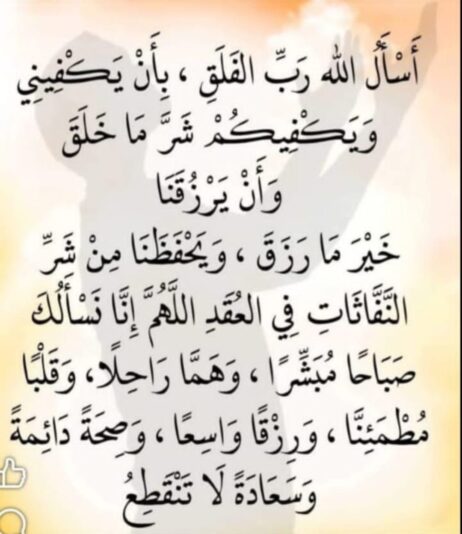 أَسْأَلُ الله رَبِّ الفَلَقِ ، بِأَنْ يَكْفِينِي
وَيَكْفِيكُمْ شَرَّ مَا خَلَقَ
وَأَنْ يَرْزُقَنَا
خَيْرَ مَا رَزَقَ ، وَيَحْفَظَنَا مِنْ شَرِّ
النَّفَّاثَاتِ فِي العُقَدِ اللَّهُمَّ إِنَّا نَسْأَلُكَ
صَبَاحًا مُبَشِّرًا ، وَهَمَّا رَاحِلًا، وَقَلْبًا
مُطْمَئِنَّا ، وَرِزْقًا وَاسِعًا ، وَصِحَةً دَائِمَةً
وَسَعَادَةً لَا تَنْقَطِعُ